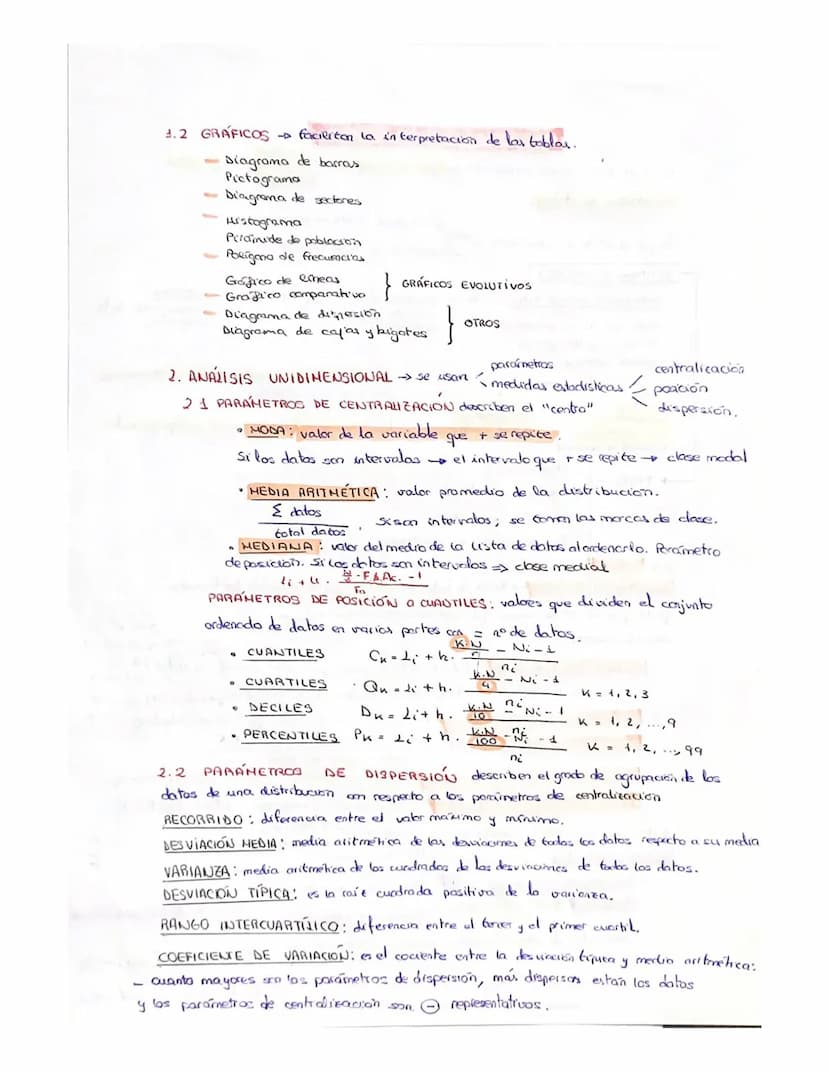 1.2 GRÁFICOS → facilitan la interpretación de las tablas.
- Diagrama de barras
Pictograma
- Diagrama de sectores
- Histograma
Pirámide de población
- Polígono de frecuencias
Gráfico de líneas
- Gráfico comparativo } GRÁFICOS EVOLUTIVOS
- Diagrama de dispersión
Diagrama de cajas y bigotes } OTROS
2. ANÁLISIS UNIDIMENSIONAL → se usan parámetros
medidas estadísticas centralización
posición
dispersión.
2.1 PARÁMETROS DE CENTRALIZACIÓN describen el "centro"
• MODA: valor de la variable que + se repite.
Si los datos son intervalos → el intervalo que + se repite → clase modal
• MEDIA ARITMÉTICA: valor promedio de la distribución.
Σ datos
total datos, si son intervalos, se toman las marcas de clase.
• MEDIANA: valor del medio de la lista de datos al ordenarlo. Parámetro
de posición. Si los datos son intervalos ⇒ clase medial
PARÁMETROS DE POSICIÓN O CUANTILES: valores que dividen el conjunto
ordenado de datos en varias partes con = nº de datos.
• CUANTILES Ck = Li + h. K.N - Ni-1
ni
• CUARTILES Qk = Li + h. K.N/4 - Ni-1
ni K = 1, 2, 3
• DECILES Dk = Li + h. K.N/10 - Ni-1
ni K = 1, 2, ..., 9
• PERCENTILES Pk = Li + h. K.N/100 - Ni-1
ni K = 1, 2, ..., 99
2.2 PARÁMETROS DE DISPERSIÓN describen el grado de agrupación de los
datos de una distribución con respecto a los parámetros de centralización
RECORRIDO: diferencia entre el valor máximo y mínimo.
DESVIACIÓN MEDIA: media aritmética de las desviaciones de todos los datos respecto a su media
VARIANZA: media aritmética de los cuadrados de las desviaciones de todos los datos.
DESVIACIÓN TÍPICA: es la raíz cuadrada positiva de la varianza.
RANGO INTERCUARTÍLICO: diferencia entre el tercer y el primer cuartil.
COEFICIENTE DE VARIACIÓN: es el cociente entre la desviación típica y media aritmética:
- cuanto mayores son los parámetros de dispersión, más dispersos están los datos
y los parámetros de centralización son (-) representativos.